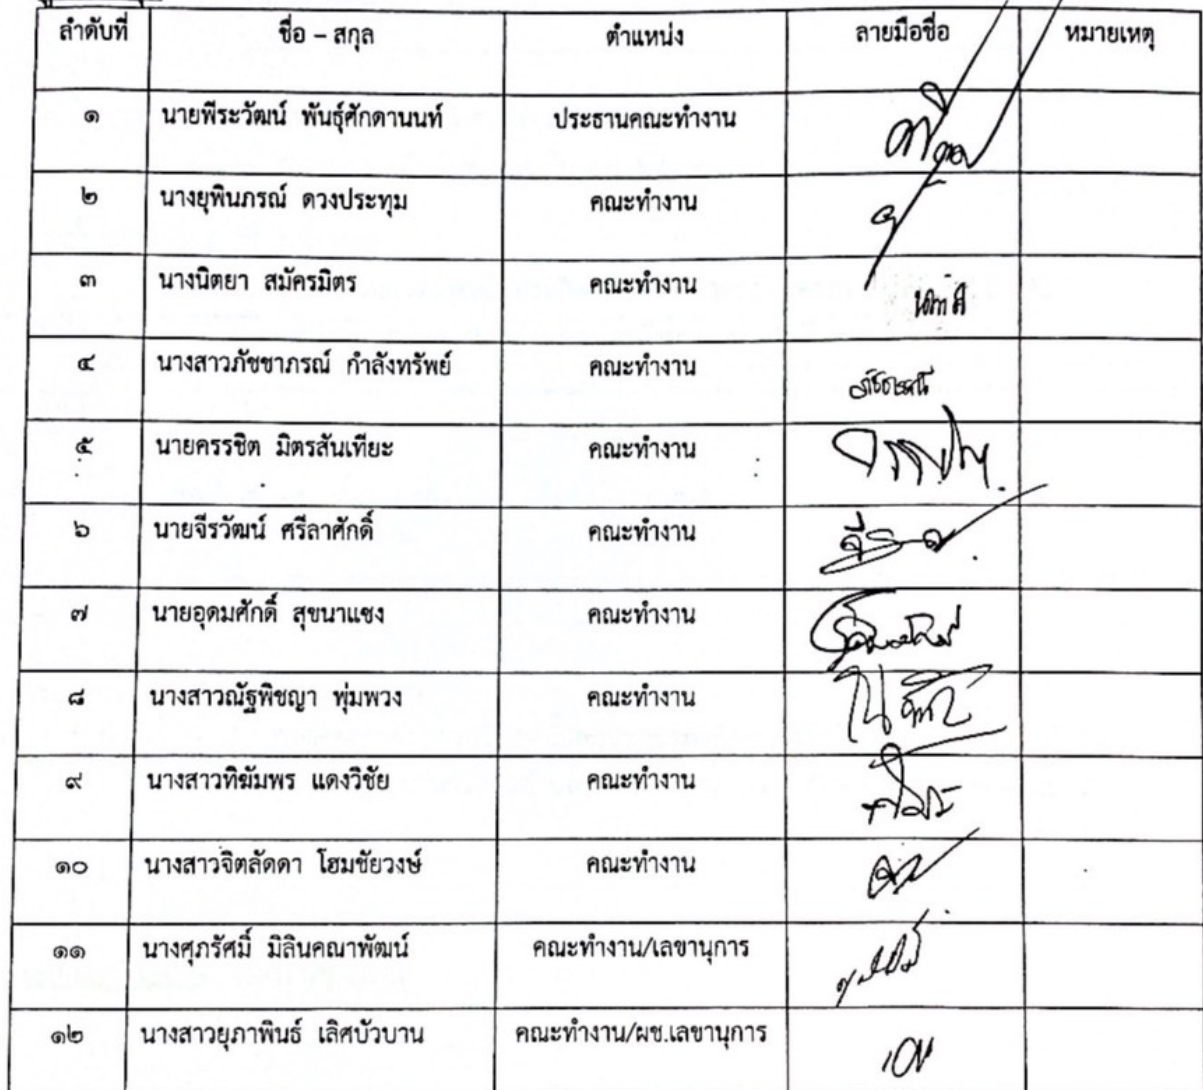 ลำดับที่ ชื่อ – สกุล ตำแหน่ง ลายมือชื่อ หมายเหตุ
๑ นายพีระวัฒน์ พันธุ์ศักดานนท์ ประธานคณะทำงาน
๒ นางยุพินภรณ์ ดวงประทุม คณะทำงาน
๓ นางนิตยา สมัครมิตร คณะทำงาน
๔ นางสาวภัชชาภรณ์ กำลังทรัพย์ คณะทำงาน
๕ นายครรชิต มิตรสันเทียะ คณะทำงาน
๖ นายจีรวัฒน์ ศรีลาศักดิ์ คณะทำงาน
๗ นายอุดมศักดิ์ สุขนาแซง คณะทำงาน
๘ นางสาวณัฐพิชญา พุ่มพวง คณะทำงาน
๙ นางสาวทิฆัมพร แดงวิชัย คณะทำงาน
๑๐ นางสาวจิตลัดดา โฮมชัยวงษ์ คณะทำงาน
๑๑ นางศุภรัศมิ์ มิลินคณาพัฒน์ คณะทำงาน/เลขานุการ
๑๒ นางสาวยุภาพินธ์ เลิศบัวบาน คณะทำงาน/ผช.เลขานุการ